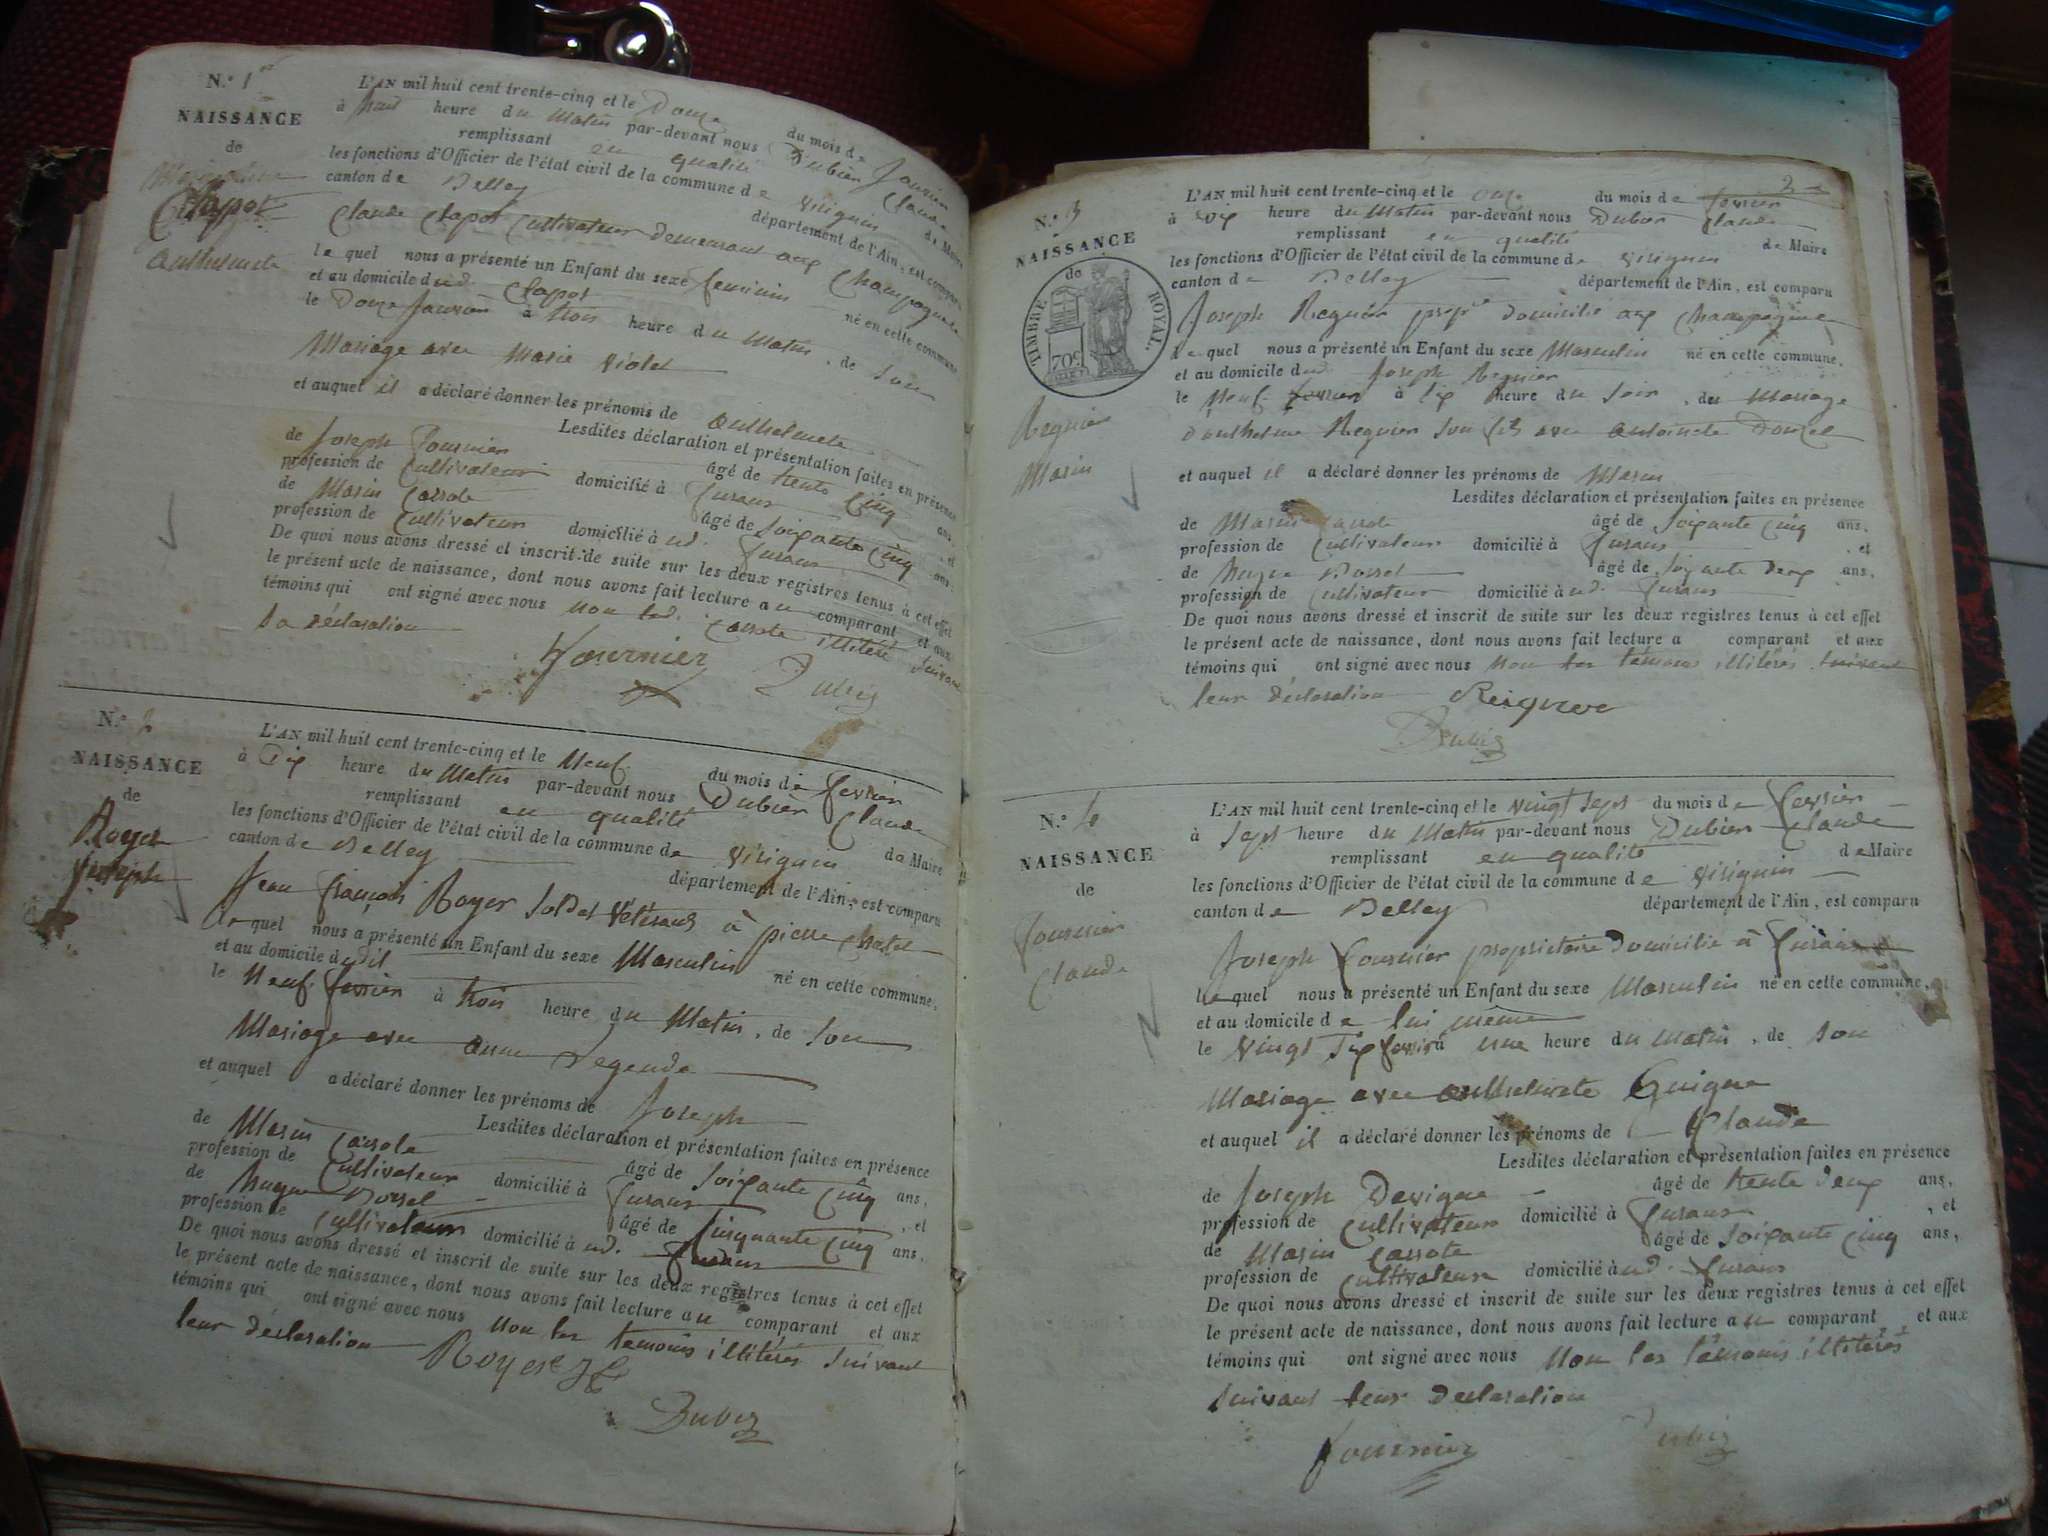 N.° 1er
NAISSANCE
de
Clapot
Anthelmete
L'AN mil huit cent trente-cinq et le Douze du mois de Janvier
à huit heure du Matin par-devant nous Dubier Claude
remplissant en qualité de Maire
les fonctions d'Officier de l'état civil de la commune de Virignin
canton de Belley département de l'Ain, est comparu
Claude Clapot Cultivateur demeurant aux Champagne
le quel nous a présenté un Enfant du sexe feminin né en cette commune
et au domicile dud. Clapot
le Douze Janvier à trois heure du Matin, de son
Mariage avec Marie Violet
et auquel il a déclaré donner les prénoms de Anthelmete
Lesdites déclaration et présentation faites en présence
de Joseph Fournier âgé de trente cinq ans,
profession de Cultivateur domicilié à furans, et
de Marin Carrote âgé de soixante cinq ans,
profession de Cultivateur domicilié à ud. furans
De quoi nous avons dressé et inscrit de suite sur les deux registres tenus à cet effet
le présent acte de naissance, dont nous avons fait lecture au comparant et aux
témoins qui ont signé avec nous non led. Carrote illiteré suivant
sa déclaration
Fournier Dubier
N.° 2
NAISSANCE
de
Royer
Joseph
L'AN mil huit cent trente-cinq et le Neuf du mois de fevrier
à Dix heure du Matin par-devant nous Dubier Claude
remplissant en qualité de Maire
les fonctions d'Officier de l'état civil de la commune de Virignin
canton de Belley département de l'Ain, est comparu
Jean françois Royer soldat vétérans à pierre chatel
le quel nous a présenté un Enfant du sexe Masculin né en cette commune,
et au domicile dudit
le Neuf fevrier à trois heure du Matin, de son
Mariage avec anne Legende
et auquel a déclaré donner les prénoms de Joseph
Lesdites déclaration et présentation faites en présence
de Marin Carrote âgé de soixante cinq ans,
profession de Cultivateur domicilié à furans, et
de hugue Borrel âgé de cinquante cinq ans,
profession de cultivateur domicilié à ud. furans
De quoi nous avons dressé et inscrit de suite sur les deux registres tenus à cet effet
le présent acte de naissance, dont nous avons fait lecture au comparant et aux
témoins qui ont signé avec nous non les temoins illiterés suivant
leur déclaration
Royer Dubier
2
N.° 3
NAISSANCE
de
TIMBRE ROYAL.
70c
Regnier
Marin
L'AN mil huit cent trente-cinq et le onze du mois de fevrier
à dix heure du Matin par-devant nous Dubier Claude
remplissant en qualité de Maire
les fonctions d'Officier de l'état civil de la commune de Virignin
canton de Belley département de l'Ain, est comparu
Joseph Regnier propre domicilié aux Champagne
le quel nous a présenté un Enfant du sexe Masculin né en cette commune,
et au domicile dud. Joseph Regnier
le Neuf fevrier à six heure du soir, du Mariage
d'anthelme Regnier son fils avec antoinete Douzel
et auquel il a déclaré donner les prénoms de Marin
Lesdites déclaration et présentation faites en présence
de Marin Carrote âgé de soixante cinq ans,
profession de Cultivateur domicilié à furans, et
de hugue Borrel âgé de soixante deux ans,
profession de Cultivateur domicilié à ud. furans
De quoi nous avons dressé et inscrit de suite sur les deux registres tenus à cet effet
le présent acte de naissance, dont nous avons fait lecture a comparant et aux
témoins qui ont signé avec nous non les témoins illiterés suivant
leur déclaration Reignier
Dubier
N.° 4
NAISSANCE
de
fournier
Claude
L'AN mil huit cent trente-cinq et le vingt sept du mois de fevrier
à sept heure du Matin par-devant nous Dubier Claude
remplissant en qualité de Maire
les fonctions d'Officier de l'état civil de la commune de Virignin
canton de Belley département de l'Ain, est comparu
Joseph fournier proprietaire domicilié à furans
le quel nous a présenté un Enfant du sexe Masculin né en cette commune,
et au domicile de lui même
le vingt six fevrier à une heure du matin, de son
Mariage avec anthelmete Guigue
et auquel il a déclaré donner les prénoms de Claude
Lesdites déclaration et présentation faites en présence
de Joseph Devigne âgé de trente deux ans,
profession de Cultivateur domicilié à furans, et
de Marin Carrote âgé de soixante cinq ans,
profession de Cultivateur domicilié à ud. furans
De quoi nous avons dressé et inscrit de suite sur les deux registres tenus à cet effet
le présent acte de naissance, dont nous avons fait lecture au comparant et aux
témoins qui ont signé avec nous non les témoins illiterés
suivant leur declaration
fournier Dubier